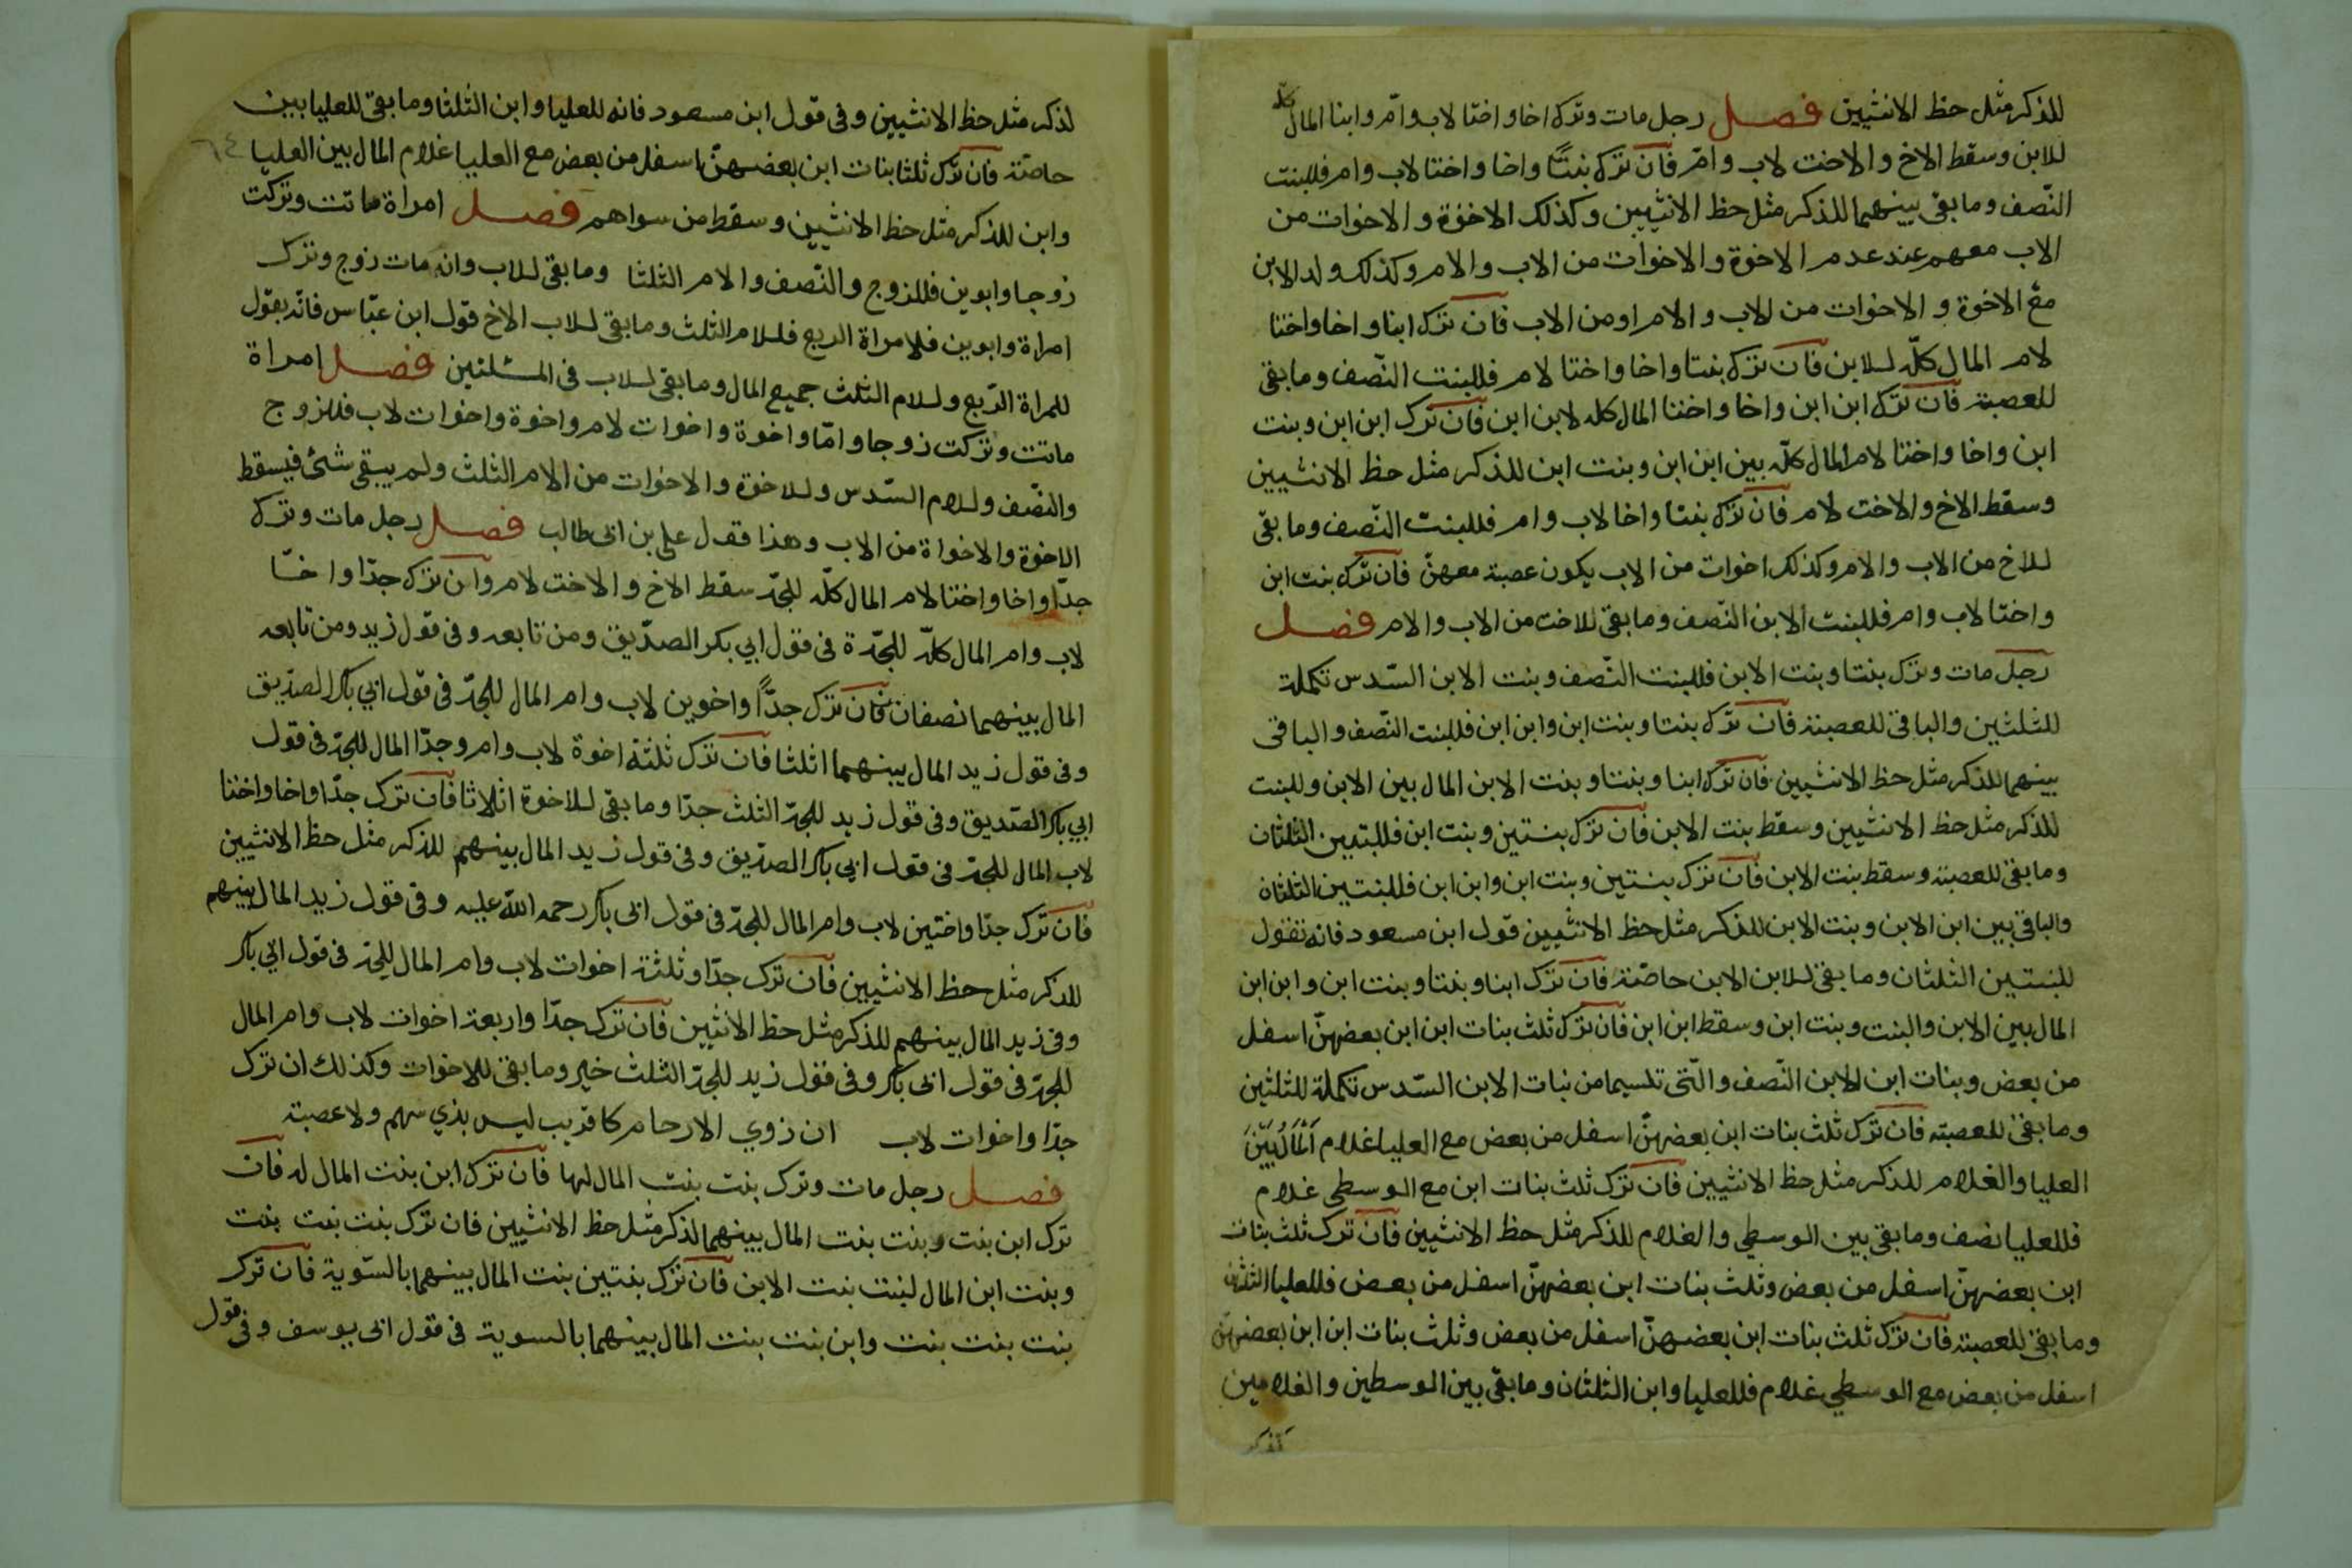 للذكر مثل حظ الانثيين فصل رجل مات وترك اخا واختا لاب وامّ وابنا المال كله
للابن وسقط الاخ والاخت لاب وامّ فان ترك بنتًا واخا واختا لاب وام فللبنت
النّصف وما بقى بينهما للذكر مثل حظ الانثيين وكذلك الاخوة والاخوات من
الاب معهم عند عدم الاخوة والاخوات من الاب والام وكذلك ولد الابن
مع الاخوة والاخوات من الاب والام او من الاب فان ترك ابنا واخا واختا
لام المال كلّه للابن فان ترك بنتا واخا واختا لام فللبنت النّصف وما بقى
للعصبة فان ترك ابن ابن واخا واختا المال كله لابن ابن فان ترك ابن ابن وبنت
ابن واخا واختا لام المال كلّه بين ابن ابن وبنت ابن للذكر مثل حظ الانثيين
وسقط الاخ والاخت لام فان ترك بنتا واخا لاب وام فللبنت النّصف وما بقى
للاخ من الاب والام وكذلك اخوات من الاب يكون عصبة معهنّ فان ترك بنت ابن
واختا لاب وام فللبنت الابن النّصف وما بقى للاخت من الاب والام فصل
رجل مات وترك بنتا وبنت الابن فللبنت النّصف وبنت الابن السّدس تكملة
للثلثين والباقى للعصبة فان ترك بنتا وبنت ابن وابن ابن فللبنت النّصف والباقى
بينهما للذكر مثل حظ الانثيين فان ترك ابنا وبنتا وبنت الابن المال بين الابن وللبنت
للذكر مثل حظ الانثيين وسقط بنت الابن فان ترك بنتين وبنت ابن فللبنتين الثلثان
وما بقى للعصبة وسقط بنت الابن فان ترك بنتين وبنت ابن وابن ابن فللبنتين الثلثان
والباقى بين ابن الابن وبنت الابن للذكر مثل حظ الانثيين قول ابن مسعود فانه تقول
للبنتين الثلثان وما بقى للابن الابن حاصّة فان ترك ابنا وبنتا وبنت ابن وابن ابن
المال بين الابن والبنت وبنت ابن وسقط ابن ابن فان ترك ثلث بنات ابن ابن بعضهنّ اسفل
من بعض وبنات ابن الابن النّصف والتّى تليهما من بنات الابن السّدس تكملة للثلثين
وما بقى للعصبة فان ترك ثلث بنات ابن بعضهنّ اسفل من بعض مع العليا غلام اَلمالُ بَيْنَ
العليا والغلام للذكر مثل حظ الانثيين فان ترك ثلث بنات ابن مع الوسطى غلام
فللعليا نصف وما بقى بين الوسطي والغلام للذكر مثل حظ الانثيين فان ترك ثلث بنات
ابن بعضهنّ اسفل من بعض وثلث بنات ابن بعضهنّ اسفل من بعض فللعليا الثلثان
وما بقى للعصبة فان ترك ثلث بنات ابن بعضهنّ اسفل من بعض وثلث بنات ابن ابن بعضهنّ
اسفل من بعض مع الوسطي غلام فللعليا وابن الثلثان وما بقى بين الوسطين والغلامين
لذكر
لذكر مثل حظ الانثيين وفى قول ابن مسعود فانه للعليا وابن الثلثا وما بقى للعليا بين
حاصّة فان ترك ثلثا بنات ابن بعضهنّ اسفل من بعض مع العليا غلام المال بين العليا ٦٤
وابن للذكر مثل حظ الانثيين وسقط من سواهم فصل امراة ماتت وتركت
زوجا وابوين فللزوج والنّصف والام الثلثا وما بقى للاب وانه مات زوج وترك
امراة وابوين فلامراة الربع فللام الثلث وما بقى للاب الاخ قول ابن عبّاس فانّه يقول
للمراة الرّبع وللام الثلث جميع المال وما بقى للاب فى المسئلتين فصل امراة
ماتت وتركت زوجا وامّا واخوة واخوات لام واخوة واخوات لاب فللزوج
والنّصف وللام السّدس وللاخوة والاخوات من الام الثلث ولم يبقى شئ فيسقط
الاخوة والاخواة من الاب وهذا فقول على بن ابى طالب فصل رجل مات وترك
جدّا واخا واختا لام المال كلّه للجدّ سقط الاخ والاخت لام وان ترك جدّا واختًا
لاب وام المال كلّه للجدّة فى قول ابي بكر الصدّيق ومن تابعه وفى قول زيد ومن تابعه
المال بينهما نصفان فان ترك جدًّا واخوين لاب وام المال للجدّ فى قول ابي بكر الصدّيق
وفى قول زيد المال بينهما اثلثا فان ترك ثلثة اخوة لاب وام وجدّا المال للجدّ فى قول
ابي بكر الصّديق وفى قول زيد للجدّ الثلث جدّا وما بقى للاخوة اثلاثا فان ترك جدّا واخا واختا
لاب المال للجدّ فى قول ابي بكر الصدّيق وفى قول زيد المال بينهم للذكر مثل حظ الانثيين
فان ترك جدّا واختين لاب وام المال للجدّ فى قول ابى بكر رحمه اللّه عليه وفى قول زيد المال بينهم
للذكر مثل حظ الانثيين فان ترك جدّا وثلثة اخوات لاب وام المال للجدّ فى قول ابي بكر
وفى زيد المال بينهم للذكر مثل حظ الانثيين فان ترك جدّا واربعة اخوات لاب وام المال
للجدّ فى قول ابى بكر وفى فقول زيد للجدّ الثلث خير وما بقى للاخوات وكذلك ان ترك
جدّا واخوات لاب ان ذوي الارحام كا قريب ليس بذي سهم ولا عصبة
فصل رجل مات وترك بنت بنت المال لها فان ترك ابن بنت المال له فان
ترك ابن بنت وبنت بنت المال بينهما لذكر مثل حظ الانثيين فان ترك بنت بنت بنت
وبنت ابن المال لبنت بنت الابن فان ترك بنتين بنت المال بينهما بالسّوية فان ترك
بنت بنت بنت وابن بنت بنت المال بينهما بالسوية فى قول ابى يوسف وفى قول